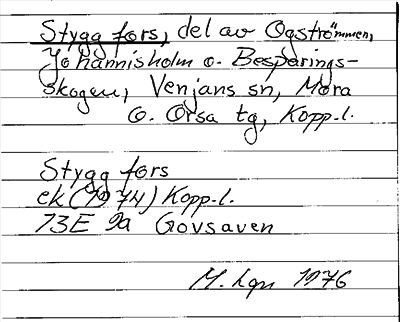 Stygg fors, del av Ogströmmen,
Johannisholm o. Besparings-
skogen, Venjans sn, Mora
o. Orsa tg, Kopp.l.
Stygg fors
ek (1974) Kopp.l.
73E 9a Govsaven
M. Lgn 1976